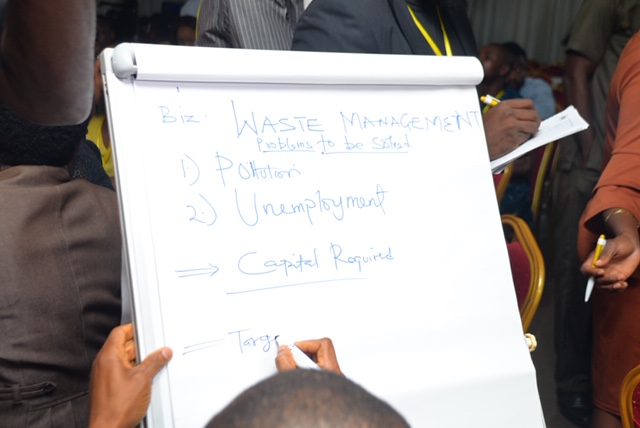 Biz: WASTE MANAGEMENT
Problems to be Solved
1) Pollution
2) Unemployment
⇒ Capital Required
= Targe